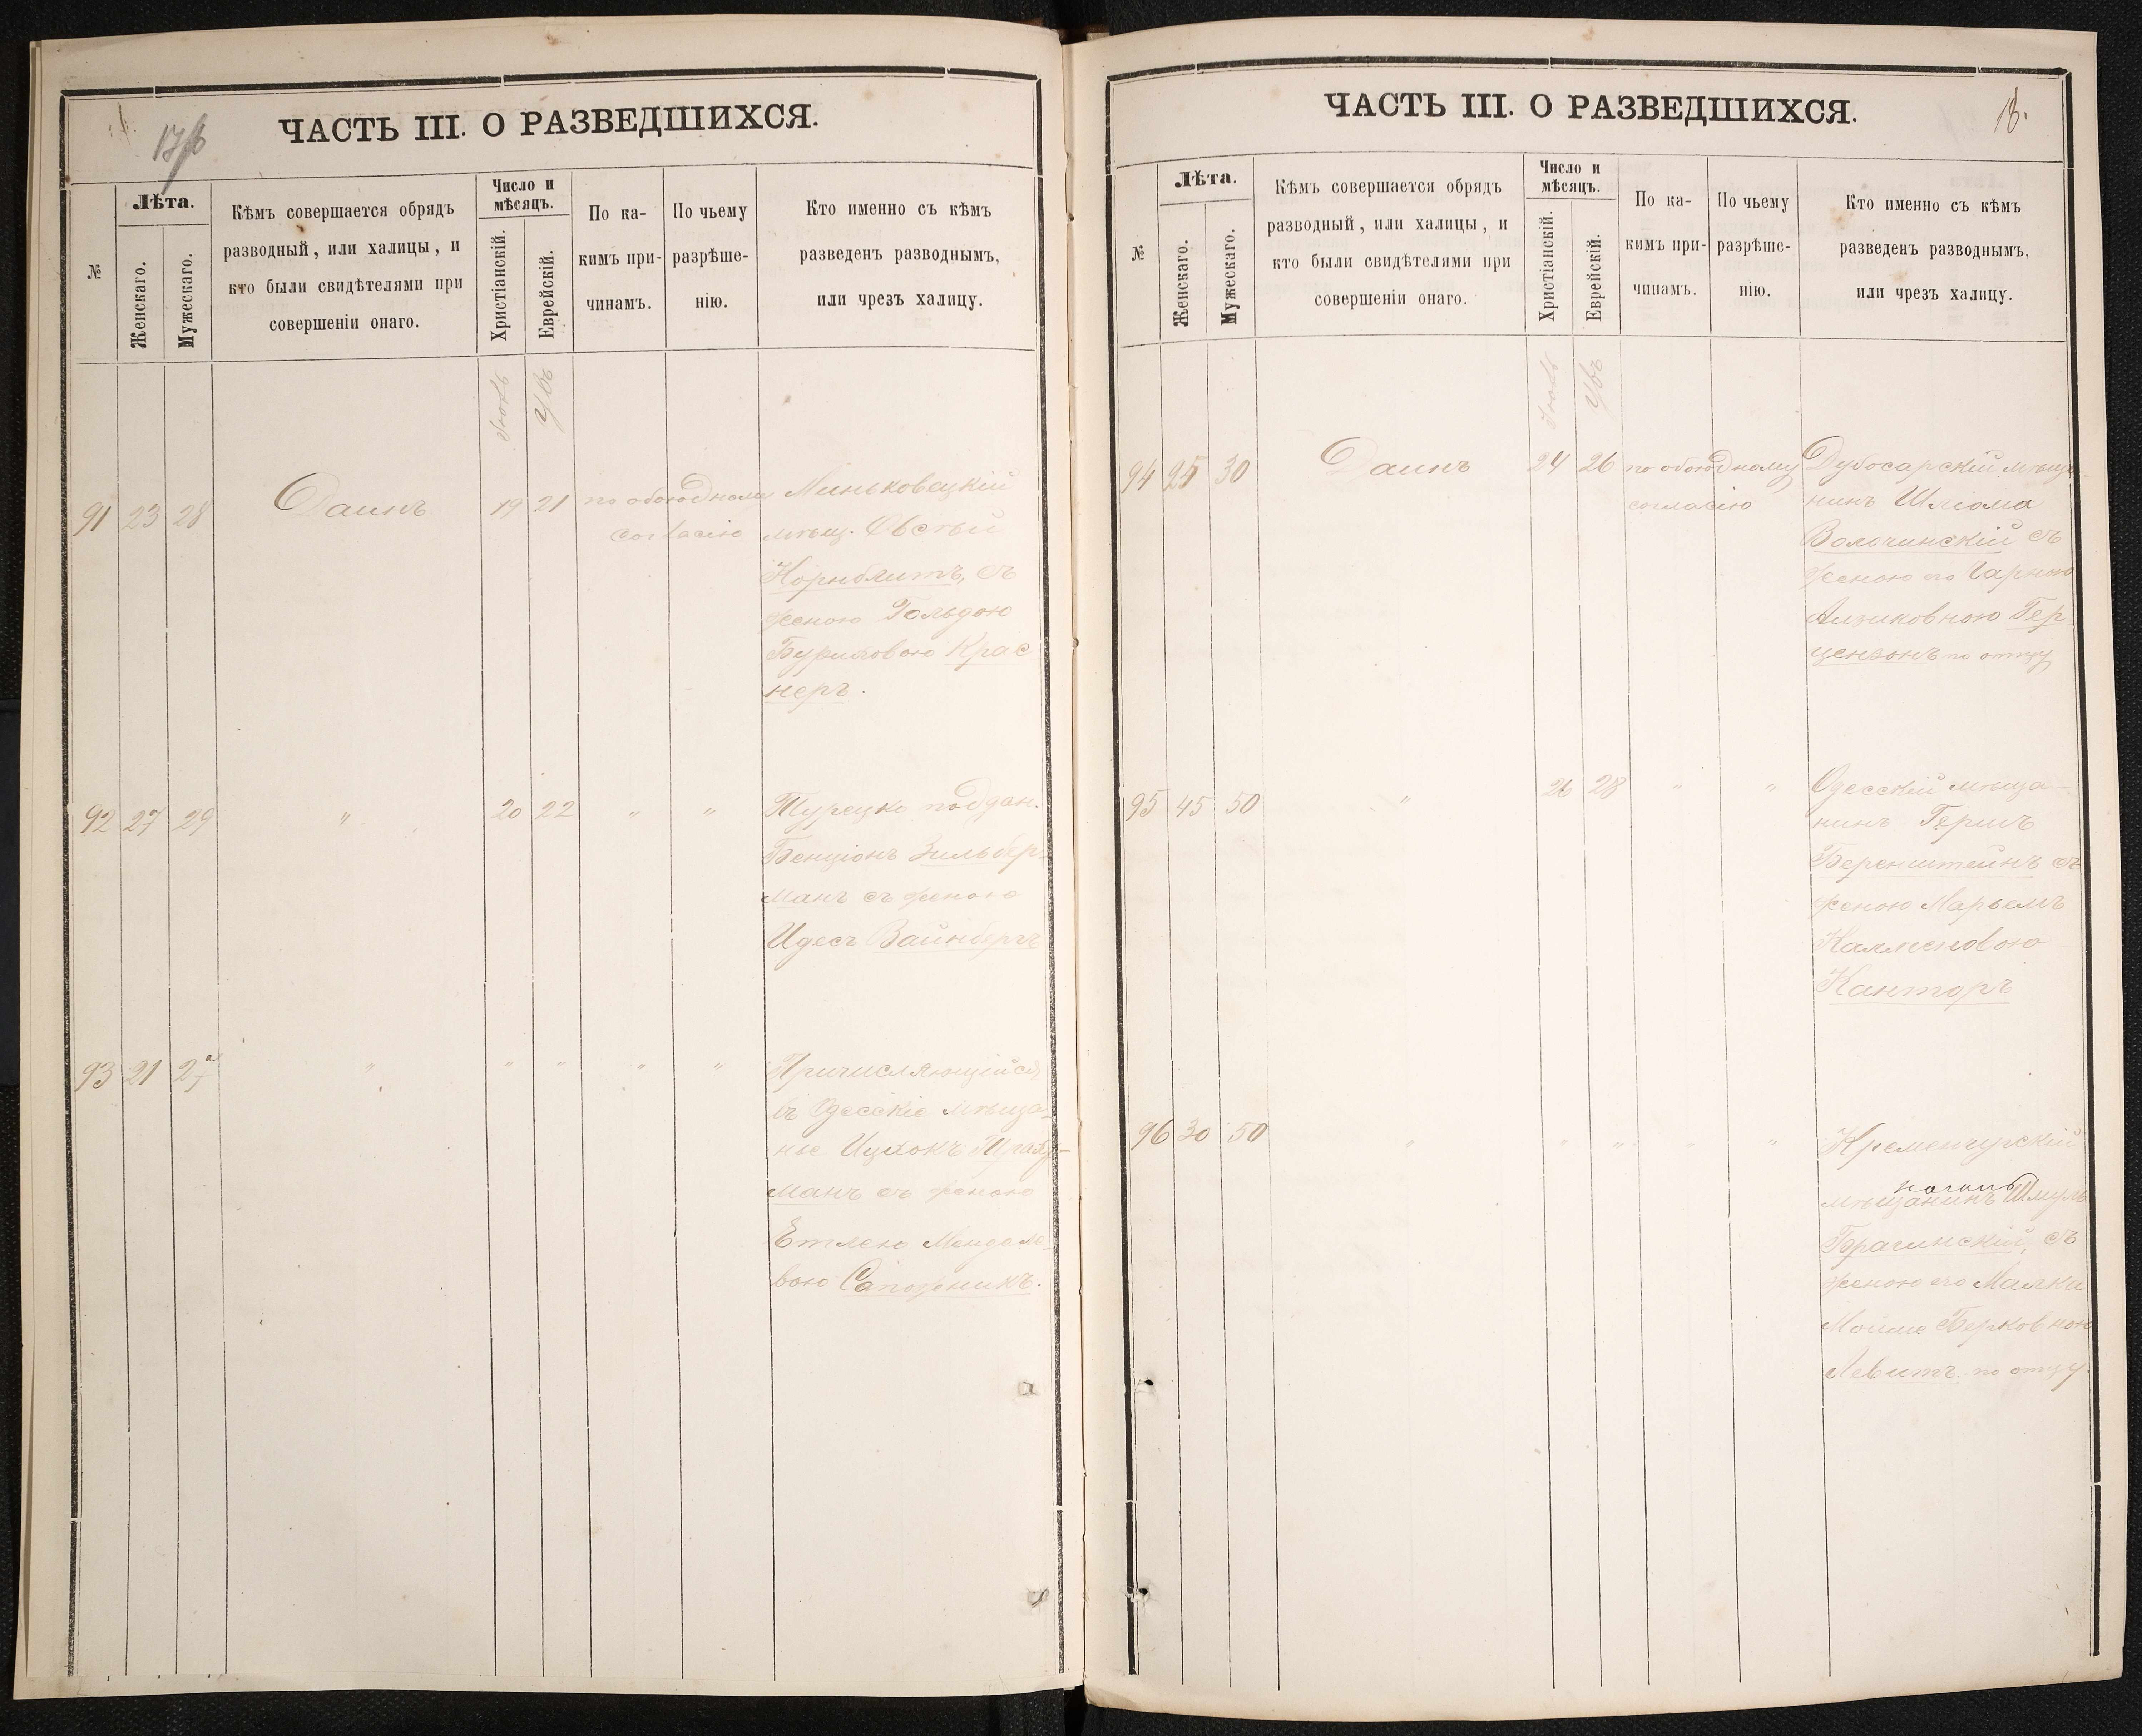 ЧАСТЬ III. О РАЗВЕДШИХСЯ.
№
Лѣта.
Женскаго.
Мужескаго.
Кѣмъ совершается обрядъ
разводный, или халицы, и
кто были свидѣтелями при
совершеніи онаго.
Число и
мѣсяцъ.
Христіанскій.
Еврейскій.
По ка-
кимъ при-
чинамъ.
По чьему
разрѣше-
нію.
Кто именно съ кѣмъ
разведенъ разводнымъ,
или чрезъ халицу.
91 23 28 Даинъ 19 21 по обоюдному Миньковецкій
согласію мѣщ. Овсѣй
Корнблитъ, съ
женою Гольдою
Буриховою Крас
неръ.
92 27 29 " 20 22 " " Турецко поддан.
Бенціонъ Зильбер-
манъ съ женою
Идесъ Вайнбергъ
93 21 27 " " " " " Причисляющійся
въ Одесскіе мѣща-
не Ицхокъ
манъ съ женою
Етлею Менделе-
вою Сапожникъ.
ЧАСТЬ III. О РАЗВЕДШИХСЯ.
18.
№
Лѣта.
Женскаго.
Мужескаго.
Кѣмъ совершается обрядъ
разводный, или халицы, и
кто были свидѣтелями при
совершеніи онаго.
Число и
мѣсяцъ.
Христіанскій.
Еврейскій.
По ка-
кимъ при-
чинамъ.
По чьему
разрѣше-
нію.
Кто именно съ кѣмъ
разведенъ разводнымъ,
или чрезъ халицу.
94 25 30 Даинъ 24 26 по обоюдному Дубосарскій мѣща-
согласію нинъ Шлома
Волочинскій съ
женою его Чарною
Гер-
цензонъ по отцу
95 45 50 " 26 28 " " Одесскій мѣща-
нинъ Гершъ
Беренштейнъ съ
женою Марьемъ
Калменовою
Канторъ
96 30 50 " " " " " Кременчугскій
мѣщанинъ Шмуль
Брагинскій, съ
женою его Малка
Мойше Берковною
Левитъ по отцу